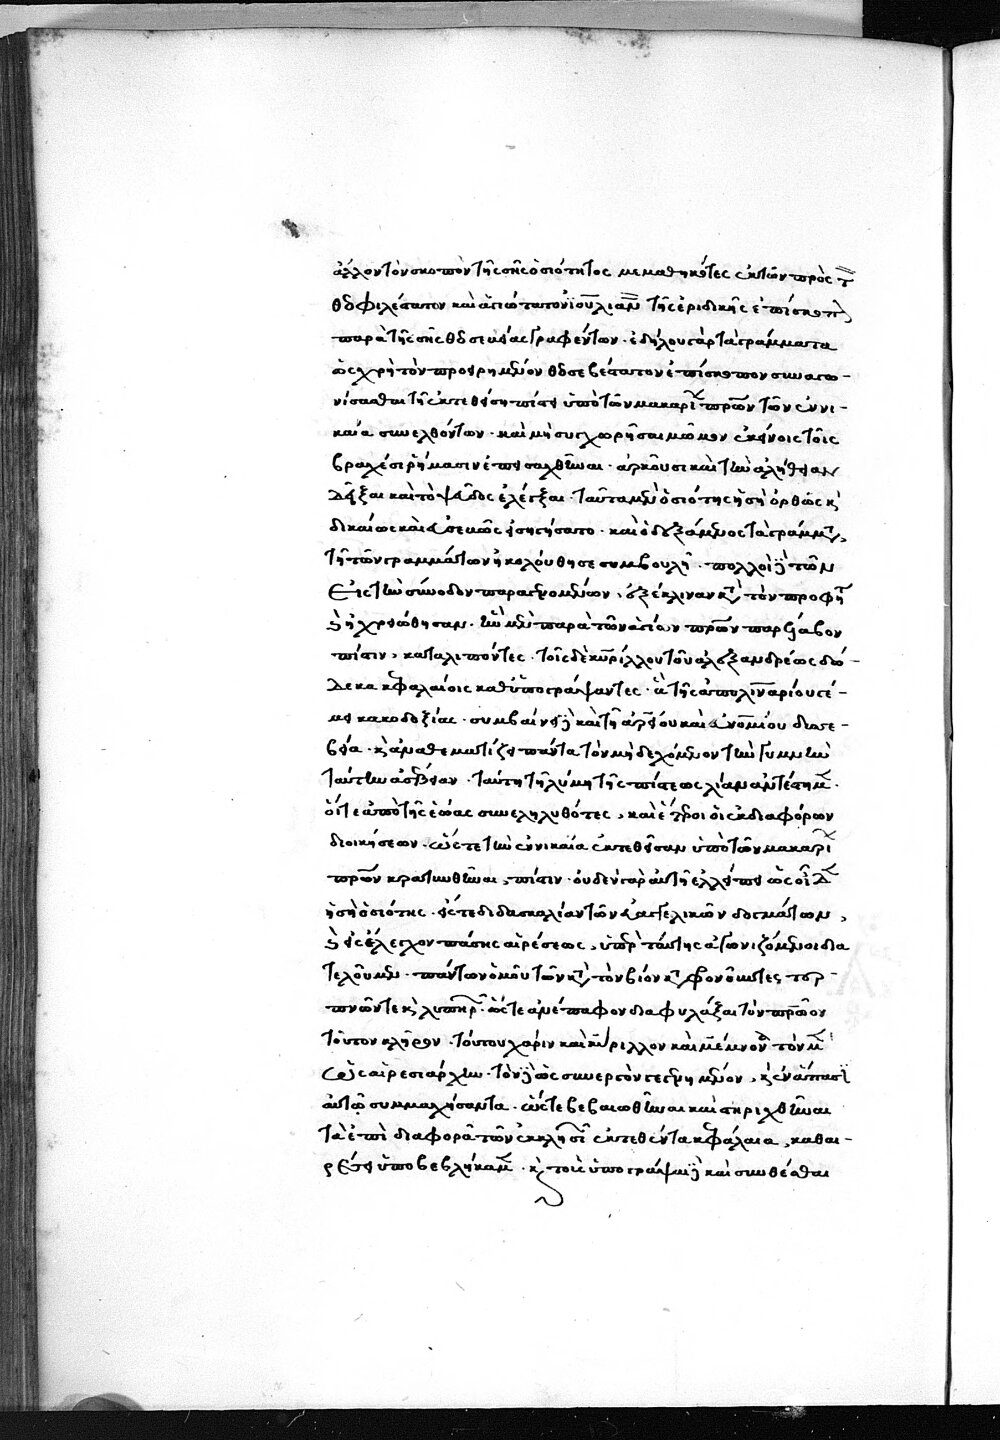 ἄλλον τὸν σκοπὸν τῆς σῆς ὁσιότητος μεμαθηκότες ἐκ τῶν πρὸς τ
θεοφιλέστατον καὶ ἁγιώτατον ἰουλιαν τῆς σερδικῆς ἐπίσκοπ
παρὰ τῆς σῆς θεοσεβείας γραφέντων · ἐδήλου γὰρ τὰ γράμματα
ὡς χρὴ τὸν προειρημένον θεοσεβέστατον ἐπίσκοπον συναγω-
νίσασθαι τῇ ἐκτεθείσῃ πίστει ὑπὸ τῶν μακαρι πρων τῶν ἐν νι-
καία συνελθόντων · καὶ μὴ συγχωρῆσαι μῶμον ἐκείνοις τοῖς
βραχέσι ῥήμασιν ἐπεισαχθῆναι · ἀρκοῦσι καὶ τὴν ἀλήθειαν
δεῖξαι καὶ τὸ ψεῦδος ἐλέγξαι · ταῦτα μὲν ὁσιότης ἡ σὴ ὀρθῶς κ
δικαίως καὶ εὐσεβῶς εἰσηγήσατο · καὶ ὁ δεξάμενος τὰ γράμμτ,
τῇ τῶν γραμμάτων ἠκολούθησε συμβουλῇ · πολλοὶ δὲ τῶν
εἰς τὴν σύνοδον παραγενομένων, ἐξέκλιναν κτ τὸν προφή
κ ἠχρειώθησαν · ἣν μὲν παρὰ τῶν ἁγίων πρων παρέλαβον
πίστιν, καταλιπόντες · τοῖς δὲ κυρίλλου τοῦ ἀλεξανδρέως δώ-
δεκα κεφαλαίοις καθυπογράψαντες · ἃ τῆς ἀπολιναρίου γέ-
μει κακοδοξίας · συμβαίνει δὲ καὶ τῇ ἀρείου καὶ εὐνομίου δυσσε-
βεία · κ ἀναθεματίζει πάντα τὸν μὴ δεχόμενον τὴν γυμνὴν
ταύτην ἀσέβειαν · ταύτῃ τῇ λύμῃ τῆς πίστεως λίαν ἀντέστημ ·
οἵ τε ἀπὸ τῆς ἑώας συνεληλυθότες, καὶ ἕτεροι οἱ ἐκ διαφόρων
διοικήσεων · ὥστε τὴν ἐν νικαία ἐκτεθεῖσαν ὑπὸ τῶν μακαρι
πρων κρατυνθῆναι, πίστιν · οὐδὲν γὰρ αὐτῇ ἐλλείπει ὡς οἶδ
ἡ σὴ ὁσιότης · εἴς τε διδασκαλίαν τῶν εὐαγγελικῶν δογμάτων,
κ εἰς ἔλεγχον πάσης αἱρέσεως, ὑπὲρ ταύτης ἀγωνιζόμενοι δια
τελοῦμεν · πάντων ὁμοῦ τῶν κτ τὸν βίον καταφρονοῦντες τερ-
πνῶν τε κ λυπηρ · ὥστε ἀνέπαφον διαφυλάξαι τὸν πρῷον
τοῦτον κλῆρον · τούτου χάριν καὶ κύριλλον καὶ μέμνονα τὸν μ
ὡς αἱρεσιάρχην · τὸν δὲ ὡς συνεργὸν γεγενημένον, κ ἐν ἅπασι
αὐτῷ συμμαχήσαντα · ὥστε βεβαιωθῆναι καὶ στηριχθῆναι
τὰ ἐπὶ διαφορᾶ τῶν ἐκκλησι ἐκτεθέντα κεφάλαια, καθαι-
ρέσει ὑποβεβλήκαμ · κ τοὺς ὑπογράψαι δὲ καὶ συνθέσθαι